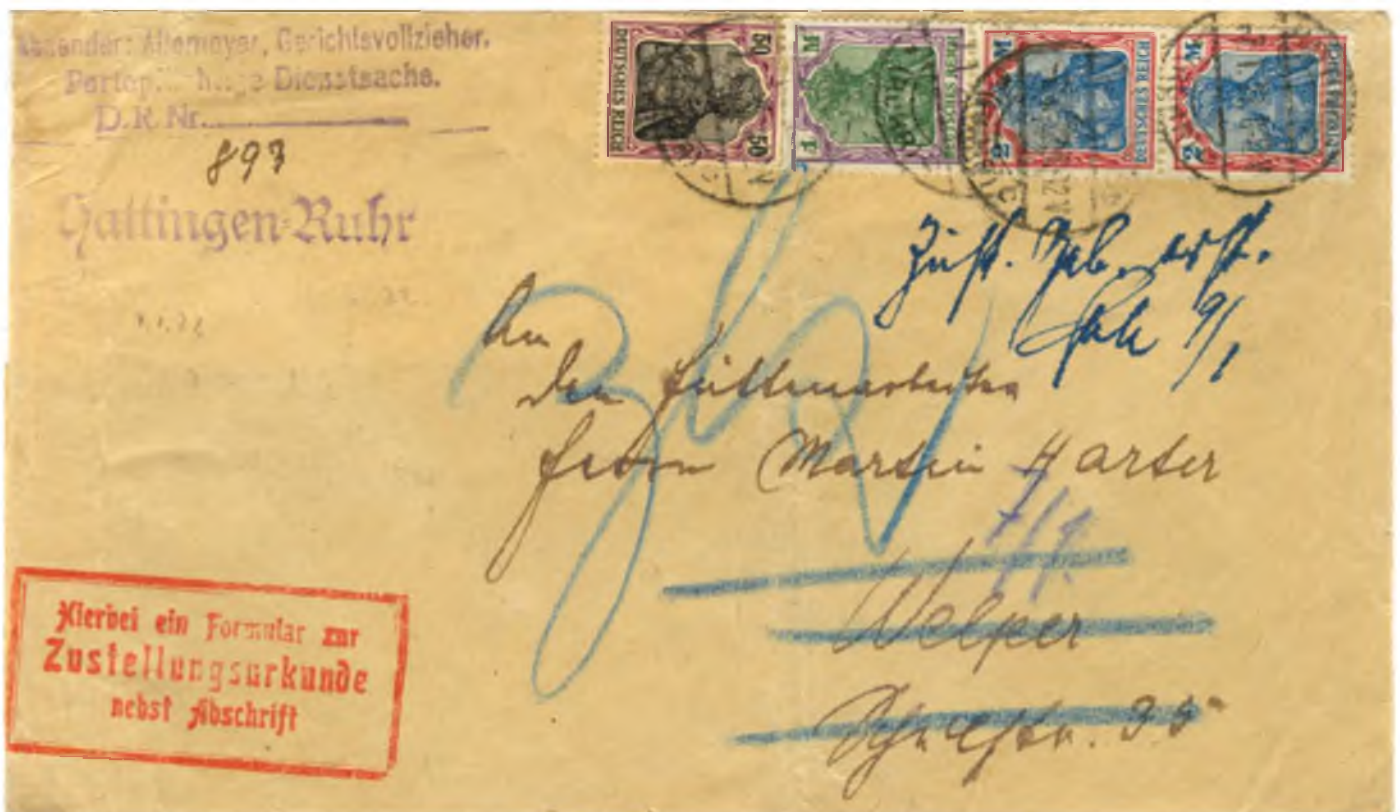 Absender: Altemeyer, Gerichtsvollzieher.
Dienstsache.
D. R. Nr.
893
Hattingen-Ruhr
DEUTSCHES REICH
50 50
DEUTSCHES REICH
1 M
DEUTSCHES REICH
2 M
DEUTSCHES REICH
2 M
Zust. Geb. 
9/1
An
den Hüttenarbeiter
Herrn Martin Harter
7/1.
Welper
Schulstr. 35
Hierbei ein Formular zur
Zustellungsurkunde
nebst Abschrift